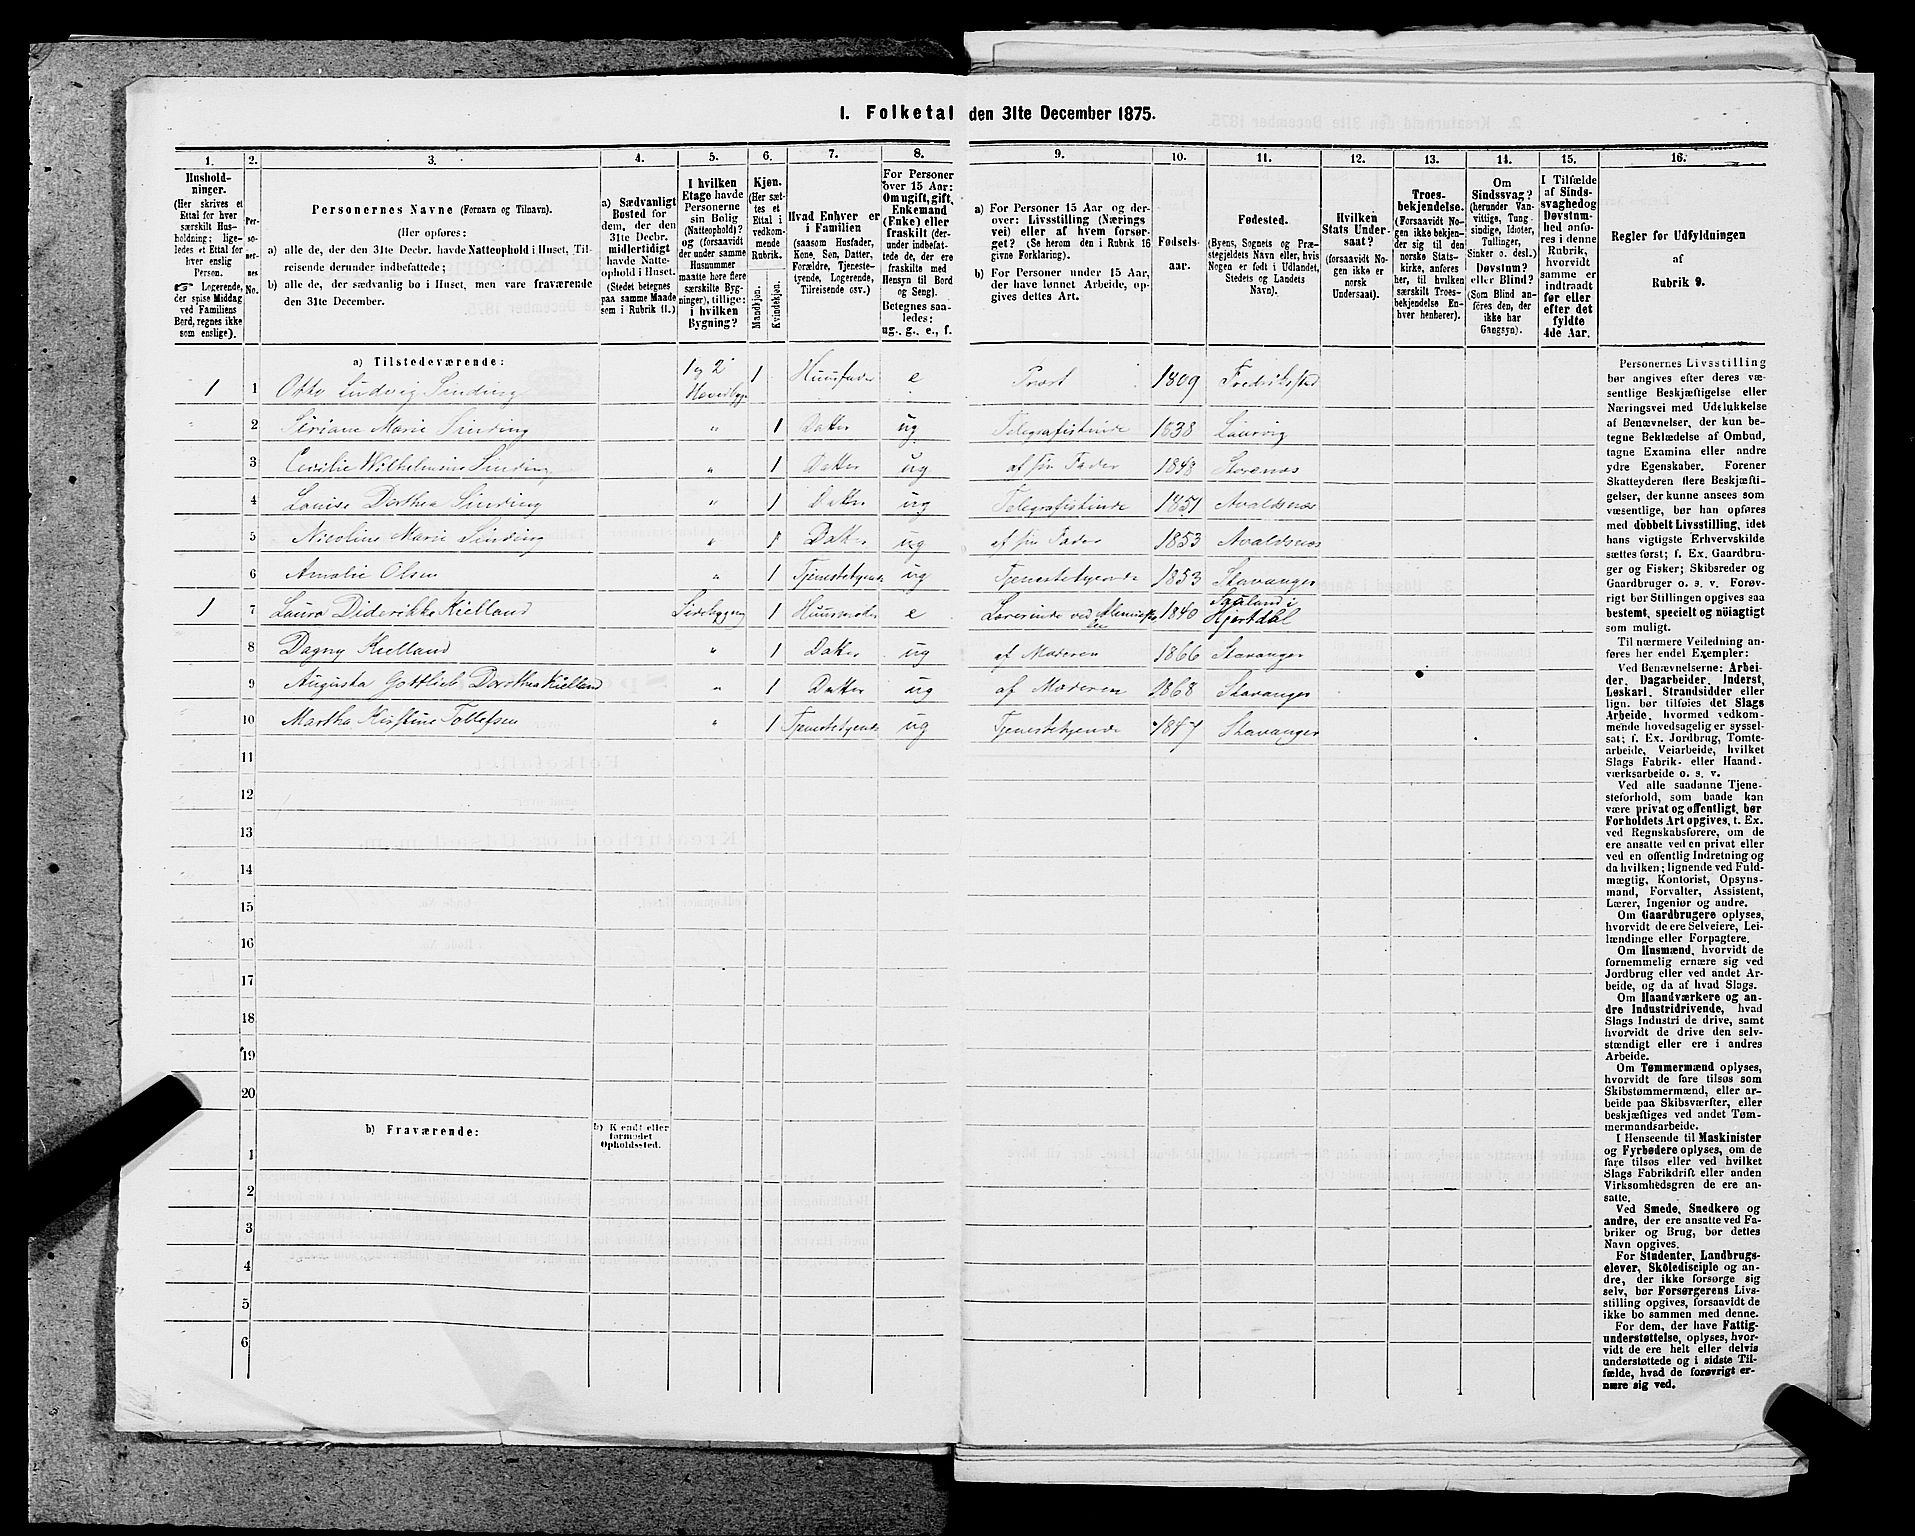 1. Folketal den 31te December 1875.
1.
2.
3.
4.
5.
6.
7.
8.
9.
10.
11.
12.
13.
14.
15.
16.
Hushold-
ninger.
(Her skrives et
Ettal for hver
særskilt Hus-
holdning; lige-
ledes et Ettal for
hver enslig
Person.
☞ Logerende,
der spise Middag
ved Familiens
Bord, regnes ikke
som enslige).
Per-
so-
ner-
nes
No.
Personernes Navne (Fornavn og Tilnavn).
(Her opføres:
a) alle de, der den 31te Decbr. havde Natteophold i Huset, Til-
reisende derunder indbefattede;
b) alle de, der sædvanlig bo i Huset, men vare fraværende
den 31te December.
a) Sædvanligt
Bosted for
dem, der den
31te Decbr.
midlertidigt
havde Natte-
ophold i Huset.
(Stedet betegnes
paa samme Maade
som i Rubrik 11.)
I hvilken
Etage havde
Personerne
sin Bolig
(Natteophold)?
og (forsaavidt
der under samme
Husnummer
maatte høre flere
særskilte Byg-
ninger), tillige:
i hvilken
Bygning?
Kjøn.
(Her sæt-
tes et
Ettal i
vedkom-
mende
Rubrik.
Mandkjøn.
Kvindekjøn.
Hvad Enhver er
i Familien
(saasom Husfader,
Kone, Søn, Datter,
Forældre, Tjeneste-
tyende, Logerende,
Tilreisende osv.)
For Personer
over 15 Aar:
Om ugift, gift,
Enkemand
(Enke) eller
fraskilt (der-
under indbefat-
tede de, der ere
fraskilte med
Hensyn til Bord
og Seng).
Betegnes saa-
ledes:
ug., g., e., f.
a) For Personer 15 Aar og der-
over: Livsstilling (Nærings-
vei) eller af hvem forsør-
get? (Se herom den i Rubrik 16
givne Forklaring).
b) For Personer under 15 Aar,
der have lønnet Arbeide, op-
gives dettes Art.
Fødsels-
aar.
Fødested.
(Byens, Sognets og Præ-
stegjeldets Navn eller, hvis
Nogen er født i Udlandet,
Stedets og Landets
Navn).
Hvilken
Stats Under-
saat?
(forsaavidt No-
gen ikke er
norsk
Undersaat).
Troes-
bekjendelse.
(Forsaavidt No-
gen ikke bekjen-
der sig til den
norske Stats-
kirke, anføres
her, til hvilken
særskilt Troes-
bekjendelse En-
hver henhører).
Om
Sindssvag?
(herunder Van-
vittige, Tung-
sindige, Idioter,
Tullinger,
Sinker o. desl.)
Døvstum?
eller Blind?
(Som Blind an-
føres den, der
ikke har
Gangsyn).
I Tilfælde
af Sinds-
svaghed og
Døvstum-
hed anfø-
res i denne
Rubrik,
hvorvidt
samme er
indtraadt
før eller
efter det
fyldte
4de Aar.
Regler for Udfyldningen
af
Rubrik 9.
a) Tilstedeværende:
1 1 Otto Ludvig Sinding 1 og 2 Hovedbygn 1 Huusfader e Prost 1809 Fredrikstad
2 Siriane Marie Sinding " 1 Datter ug Telegrafistinde 1838 Laurvig
3 Cecilie Wilhelmine Sinding " 1 Datter ug af sin Fader 1848
4 Louise Dorthea Sinding " 1 Datter ug Telegrafistinde 1851 Avaldsnæs
5 Nicoline Marie Sinding " 1 Datter ug af sin Fader 1853 Avaldsnæs
6 Amalie Olsen " 1 Tjenestetyende ug Tjenestetyende 1853 Stavanger
1 7 Laura Diderikke Kielland Sidebygning 1 Huusmoder e Lærerinde ved 1840 Sauland i Hjertdal
8 Dagny Kielland " 1 Datter ug af Moderen 1866 Stavanger
9 Augusta Gottlieb Dorothea Kielland " 1 Datter ug af Moderen 1868 Stavanger
10 Martha Kirstine Tollefsen " 1 Tjenestetyende ug Tjenestetyende 1847 Stavanger
11
12
13
14
15
16
17
18
19
20
b) Fraværende:
b) Kjendt eller
formodet
Opholdssted.
1
2
3
4
5
6
Personernes Livsstilling
bør angives efter deres væ-
sentlige Beskjæftigelse eller
Næringsvei med Udelukkelse
af Benævnelser, der kun be-
tegne Beklædelse af Ombud,
tagne Examina eller andre
ydre Egenskaber. Forener
Skatteyderen flere Beskjæfti-
gelser, der kunne ansees som
væsentlige, bør han opføres
med dobbelt Livsstilling, idet
hans vigtigste Erhvervskilde
sættes først; f. Ex. Gaardbru-
ger og Fisker; Skibsreder og
Gaardbruger o. s. v. Forøv-
rigt bør Stillingen opgives saa
bestemt, specielt og nöiagtigt
som muligt.
Til nærmere Veiledning an-
føres her endel Exempler:
Ved Benævnelserne: Arbei-
der, Dagarbeider, Inderst,
Løskarl, Strandsidder eller
lign. bør tilføies det Slags
Arbeide, hvormed vedkom-
mende hovedsagelig er syssel-
sat; f. Ex. Jordbrug, Tomte-
arbeide, Veiarbeide, hvilket
Slags Fabrik- eller Haand-
værksarbeide o. s. v.
Ved alle saadanne Tjene-
steforhold, som baade kan
være privat og offentligt, bør
Forholdets Art opgives, t. Ex.
ved Regnskabsførere, om de
ere ansatte ved en privat eller
ved en offentlig Indretning og
da hvilken; lignende ved Fuld-
mægtig, Kontorist, Opsyns-
mand, Forvalter, Assistent,
Lærer, Ingeniør og andre.
Om Gaardbrugere oplyses,
hvorvidt de ere Selveiere, Lei-
lændinge eller Forpagtere.
Om Husmænd, hvorvidt de
fornemmelig ernære sig ved
Jordbrug eller ved andet Ar-
beide, og da af hvad Slags.
Om Haandværkere og an-
dre Industridrivende, hvad
Slags Industri de drive, samt
hvorvidt de drive den selv-
stændigt eller ere i andres
Arbeide.
Om Tømmermænd oplyses,
hvorvidt de fare tilsøs som
Skibstømmermænd, eller ar-
beide paa Skibsværfter, eller
beskjæftiges ved andet Tøm-
mermandsarbeide.
I Henseende til Maskinister
og Fyrbødere oplyses, om de
fare tilsøs eller ved hvilket
Slags Fabrikdrift eller anden
Virksomhedsgren de ere an-
satte.
Ved Smede, Snedkere og
andre, der ere ansatte ved Fa-
briker og Brug, bør dettes
Navn opgives.
For Studenter, Landbrugs-
elever, Skoledisciple og an-
dre, der ikke forsørge sig
selv, bør Forsørgerens Livs-
stilling opgives, forsaavidt de
ikke bo sammen med denne.
For dem, der have Fattig-
understøttelse, oplyses, hvor-
vidt de ere helt eller delvis
understøttede og i sidste Til-
fælde, hvad de forøvrigt er-
nære sig ved.